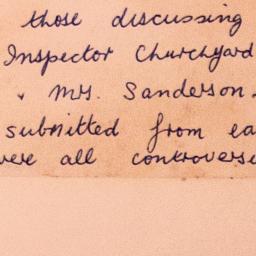 those discussing
Inspector Churchyard
, Mrs. Sanderson.
submitted from ea
were all controversi